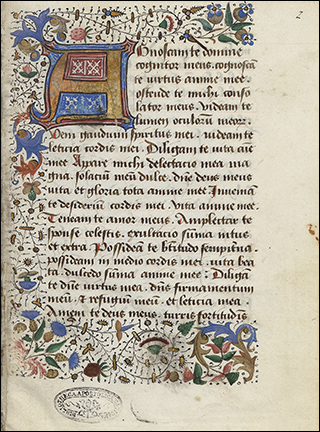 Agnoscam te domine
cognitor meus. cognoscā
te virtus anime mee.
ostende te michi conso
lator meus. videam te
lumen oculorū meoꝝ.
Veni gaudium spiritus mei. videam te
leticia cordis mei. Diligam te vita aīe
mee Apare michi delectacio mea ma
gna. solaciū meū dulce. dn̄e deus meus
vita et gloria tota anime mee. Inveniā
te desideriū cordis mei. vita anime mee.
Teneam te amor meus. Amplectar te
sponse celestis. exultacio sūma intus
et extra. Possideā te btītudo sempiterna
possideam in medio cordis mei. vita bea
ta. dulcedo sūma anime mee. Diligā
te dn̄e virtus mea. dn̄s firmamentum
meū. & refugiū meum. et leticia mea.
Amem te deus meus. turris fortitudīs